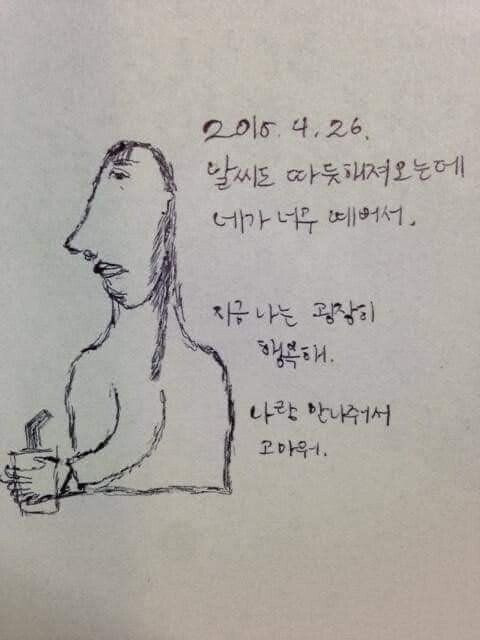 2015. 4. 26.
날씨도 따듯해져오는데
네가 너무
지금 나는 굉장히
행복해.
나랑 만나줘서
고마워.